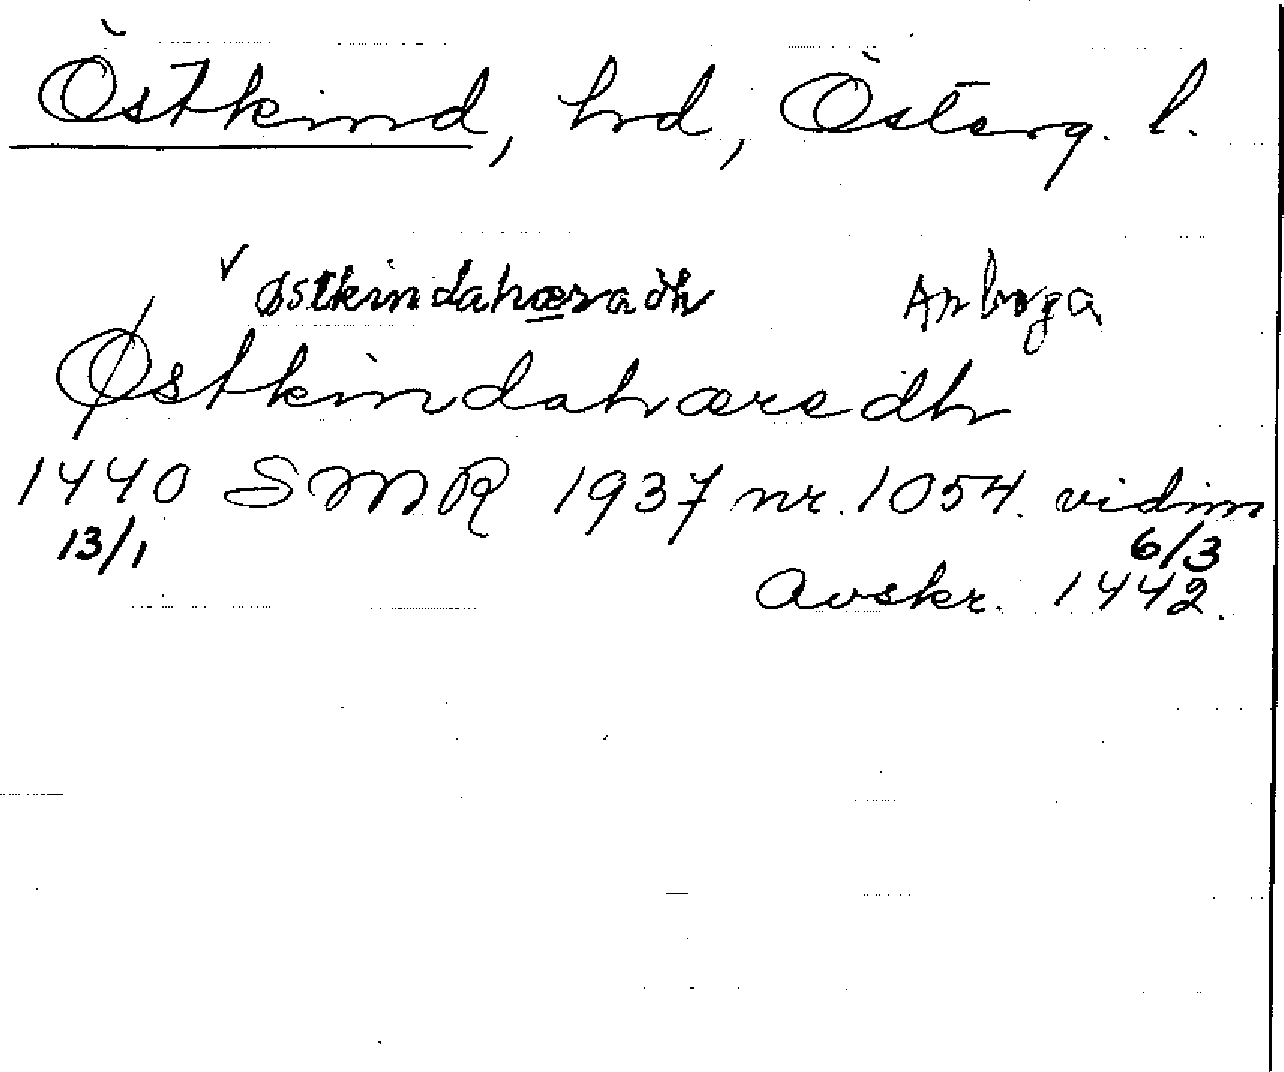 Östkind, hd, Österg. l.
√ østkindahæradh Arboga
Østkindahæradh
1440 SMR 1937 nr. 1054. vidim
13/1 6/3
Avskr. 1442.